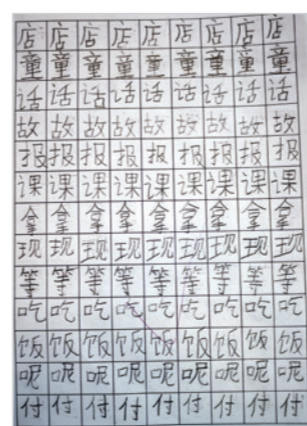 店店店店店店店店店
童童童童童童童童童
话话话话话话话话话
故故故故故故故故故
报报报报报报报报报
课课课课课课课课课
拿拿拿拿拿拿拿拿拿
现现现现现现现现现
等等等等等等等等等
吃吃吃吃吃吃吃吃吃
饭饭饭饭饭饭饭饭饭
呢呢呢呢呢呢呢呢呢
付付付付付付付付付